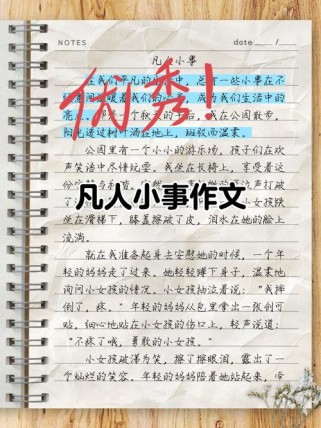 NOTES date
凡人小事
在我们平凡的生活中，总有一些小事在不
优秀！
成为我们生活中的
午后，我在公园散步，
阳光透过树叶洒在地上，斑驳而温柔。
公园里有一个小小的游乐场，孩子们在欢
声笑语中尽情玩耍。我坐在长椅上，享受着这
凡人小事作文
坐在滑梯下，膝盖擦破了皮，泪水在她的脸上
流淌。
就在我准备起身去安慰她的时候，一个年
轻的妈妈走了过来。她轻轻蹲下身子，温柔地
询问小女孩的情况。小女孩抽泣着说："我摔
倒了，疼。"年轻的妈妈从包里拿出一张创可
贴，细心地贴在小女孩的伤口上，轻声说道：
"不疼了哦，勇敢的小女孩。"
小女孩破涕为笑，擦了擦眼泪，露出了一
个灿烂的笑容。年轻的妈妈陪着她站起来，